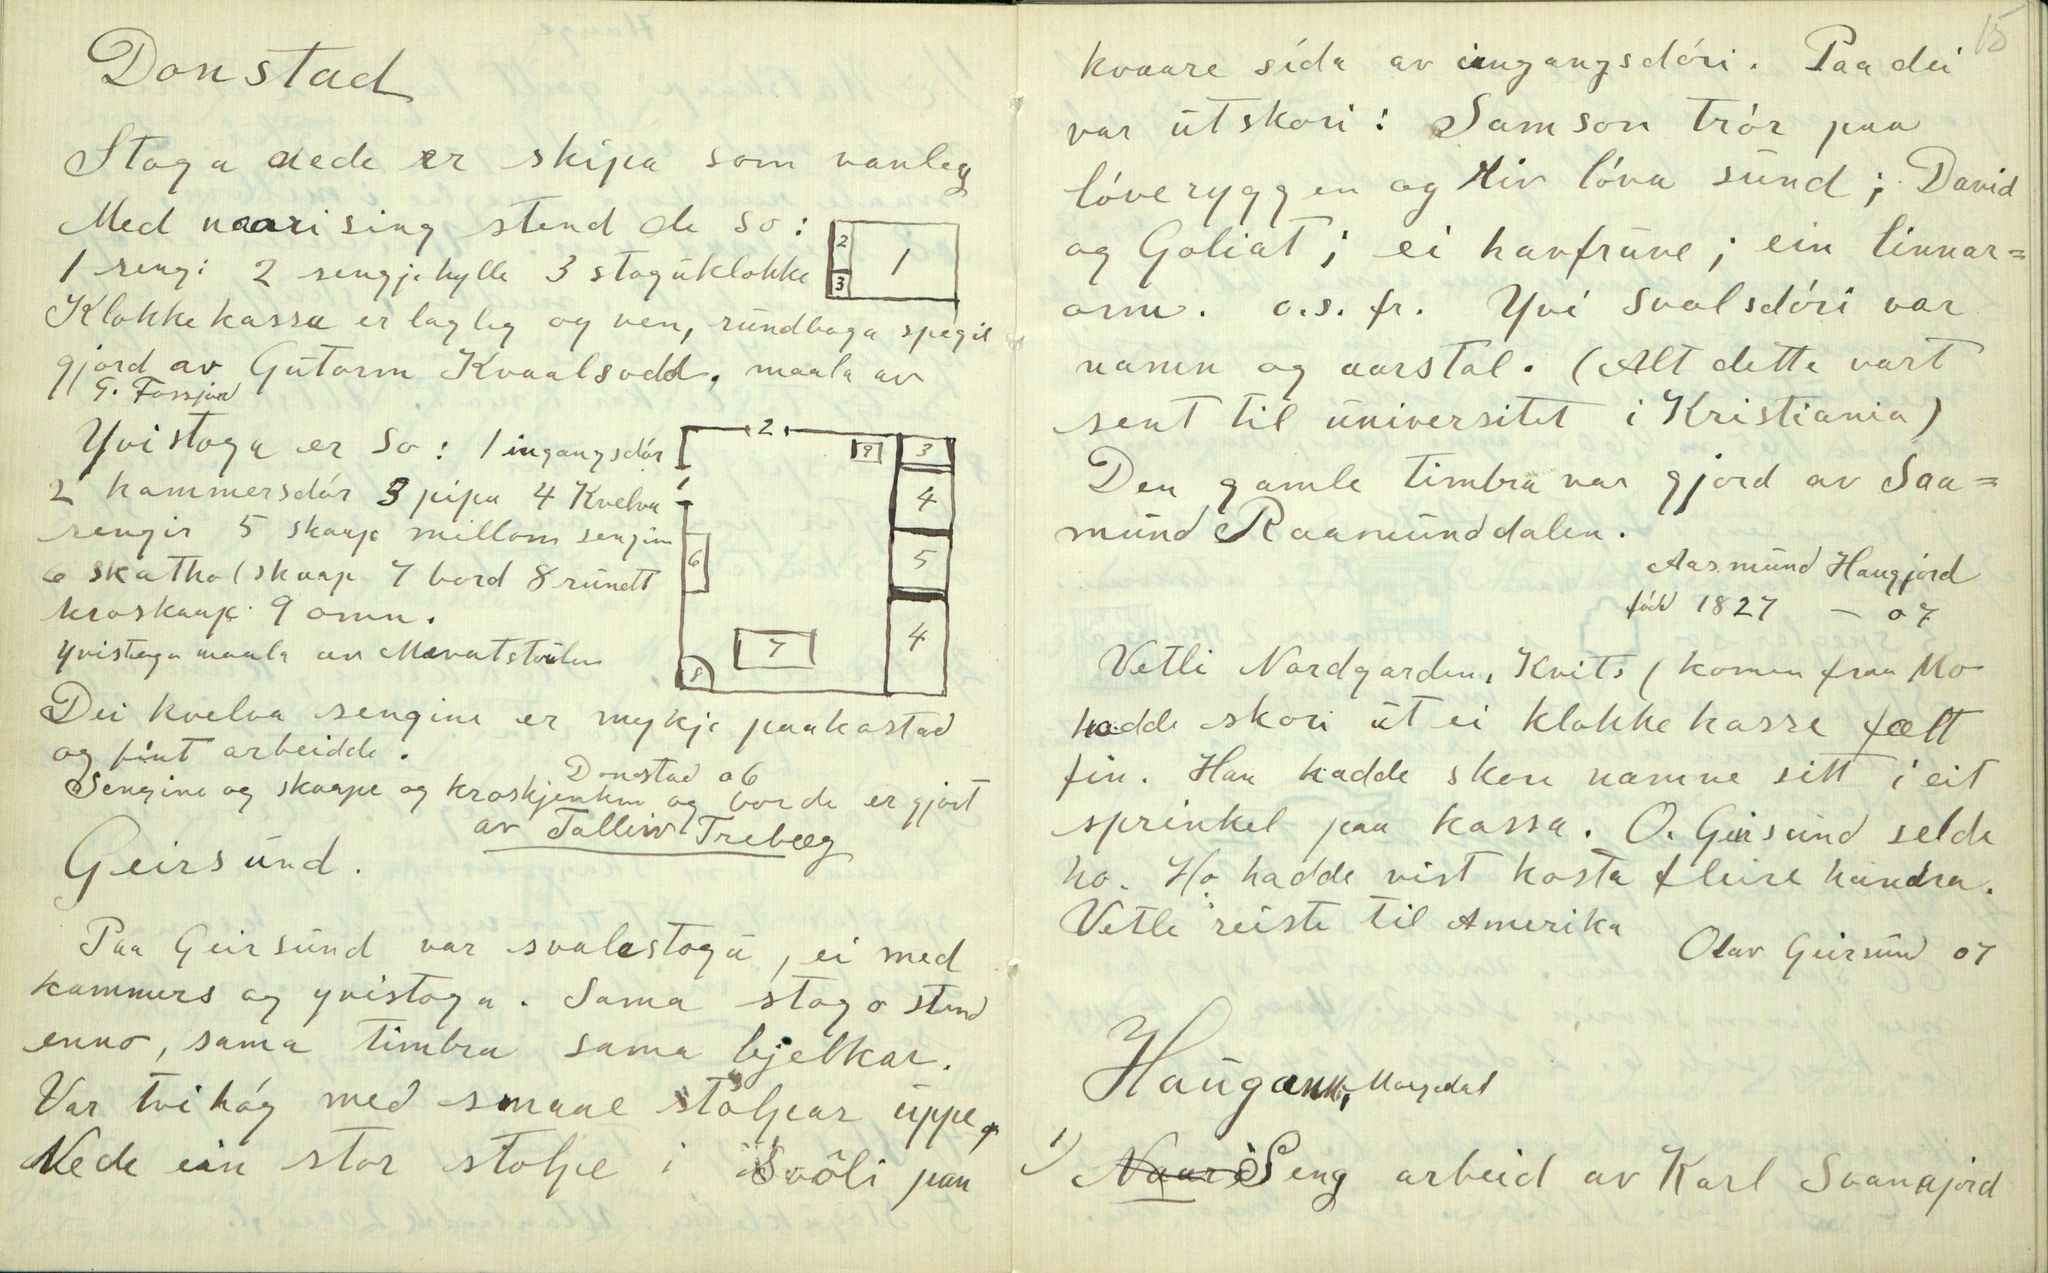 Donstad
Stoga nede er skipa som vanleg
Med naari sing stend de so:
1 sengi 2 sengjehylle 3 stoguklokke
2
3
1
Klokkekassa er lagleg og ven, rundboga spegil
gjord av Gutorm Kvaalsodd, maala av
G. Fossjord
Yvistoga er so: 1 ingangsdór
2 kammersdór 3 pipa 4 Kvelva
sengir 5 skaap millom sengin
6 skathol skaap 7 bord 8 rundt
kroskaap 9 omn.
yvistoga maala av
2
9
3
1
4
6
5
4
7
8
Dei kvelva sengine er mykje paakostad
og fint arbeidde.
Donstad 06
Sengine og skaape og og borde er gjort
av Talleiv Trebæg
Geirsund.
Paa Geirsund var svalestogu, ei med
kammers og yvistoga. Sama stogo stend
enno, sama timbra sama bjelkar.
Var tvihóg med smaae stolpar uppe,
Nede ein stor stolpe i Svôli paa
15
kvaare sida av iingangsdóri. Paa dei
var utskori: Samson trór paa
lóveryggen og riv lóva sund; David
og Goliat; ei havfruve; ein linnar=
orm. o.s.fr. Yvi svalsdóri var
namn og aarstal. (Alt dette vart
sent til universitet i Kristiania)
Den gamle timbra var gjord av Saa=
mund Raamunddalen.
Aasmund Haugjord
fódd 1827 – 07
Vetli Nordgarden, Kvits (komen fraa Mo
hadde skori ut ei klokkekasse fælt
fin. Han hadde skore namne sitt i eit
sprinkel paa kassa. O. Geirsund selde
ho. Ho hadde vist kosta fleire hundra.
Vetle reiste til Amerika
Olav Geirsund 07
Haugann, Morgedal
1) Naari Seng arbeid av Karl Svanajord